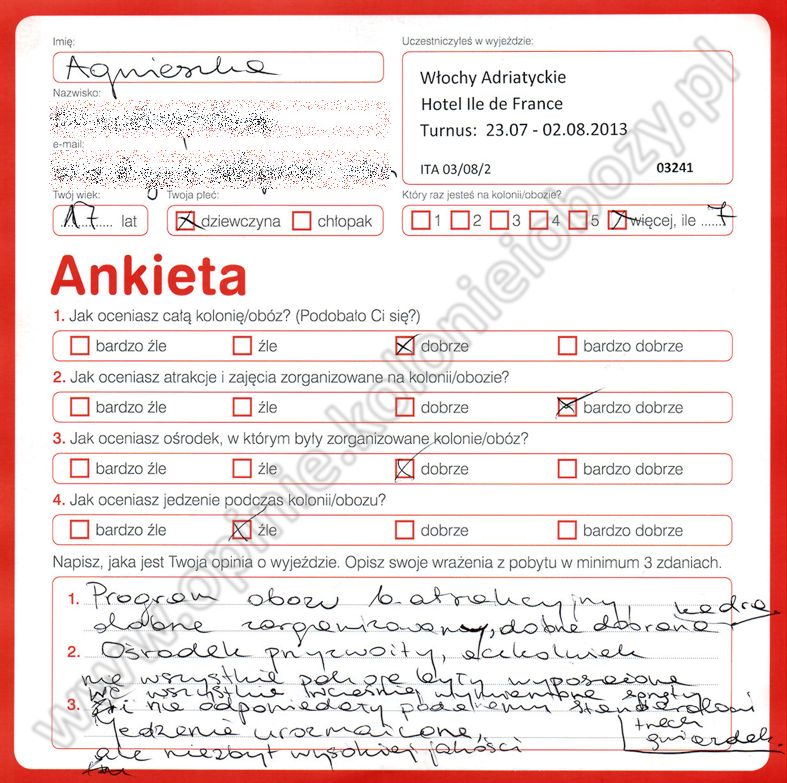 Imię:
Agnieszka
Nazwisko:
e-mail:
Uczestniczyłeś w wyjeździe:
Włochy Adriatyckie
Hotel Ile de France
Turnus: 23.07 - 02.08.2013
ITA 03/08/2 03241
Twój wiek: Twoja płeć: Który raz jesteś na kolonii/obozie?
17 lat dziewczyna chłopak 1 2 3 4 5 więcej, ile 7
Ankieta
1. Jak oceniasz całą kolonię/obóz? (Podobało Ci się?)
bardzo źle źle dobrze bardzo dobrze
2. Jak oceniasz atrakcje i zajęcia zorganizowane na kolonii/obozie?
bardzo źle źle dobrze bardzo dobrze
3. Jak oceniasz ośrodek, w którym były zorganizowane kolonie/obóz?
bardzo źle źle dobrze bardzo dobrze
4. Jak oceniasz jedzenie podczas kolonii/obozu?
bardzo źle źle dobrze bardzo dobrze
Napisz, jaka jest Twoja opinia o wyjeździe. Opisz swoje wrażenia z pobytu w minimum 3 zdaniach.
1. Program obozu b. atrakcyjny, kadra
dobrze zorganizowany, dobrze dobrana
2. Ośrodek przyzwoity, aczkolwiek
nie wszystkie pokoje były wyposażone
we wszystkie wcześniej wymienione sprzęty
3. i nie odpowiadały podanemu standardowi
trzech
gwiazdek.
Jedzenie urozmaicone,
ale niezbyt wysokiej jakości
www.opinie.kolonieiobozy.pl